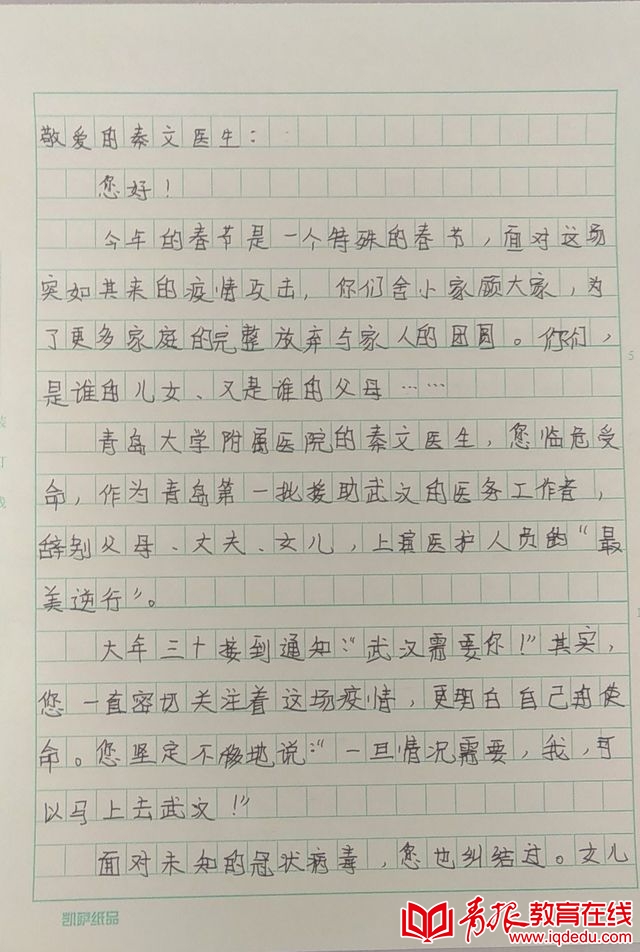 敬爱的秦文医生:
您好!
今年的春节是一个特殊的春节,面对这场
突如其来的疫情攻击,你们舍小家顾大家,为
了更多家庭的完整放弃与家人的团圆。你们,
是谁的儿女、又是谁的父母……
青岛大学附属医院的秦文医生,您临危受
命,作为青岛第一批援助武汉的医务工作者,
辞别父母、丈夫、女儿,上演医护人员的“最
美逆行”。
大年三十接到通知:“武汉需要你!”其实,
您一直密切关注着这场疫情,更明白自己的使
命。您坚定不移地说:“一旦情况需要,我,可
以马上去武汉!”
面对未知的冠状病毒,您也纠结过。女儿
凯萨纸品
青报教育在线
www.iqdedu.com
5
1
装
订
线